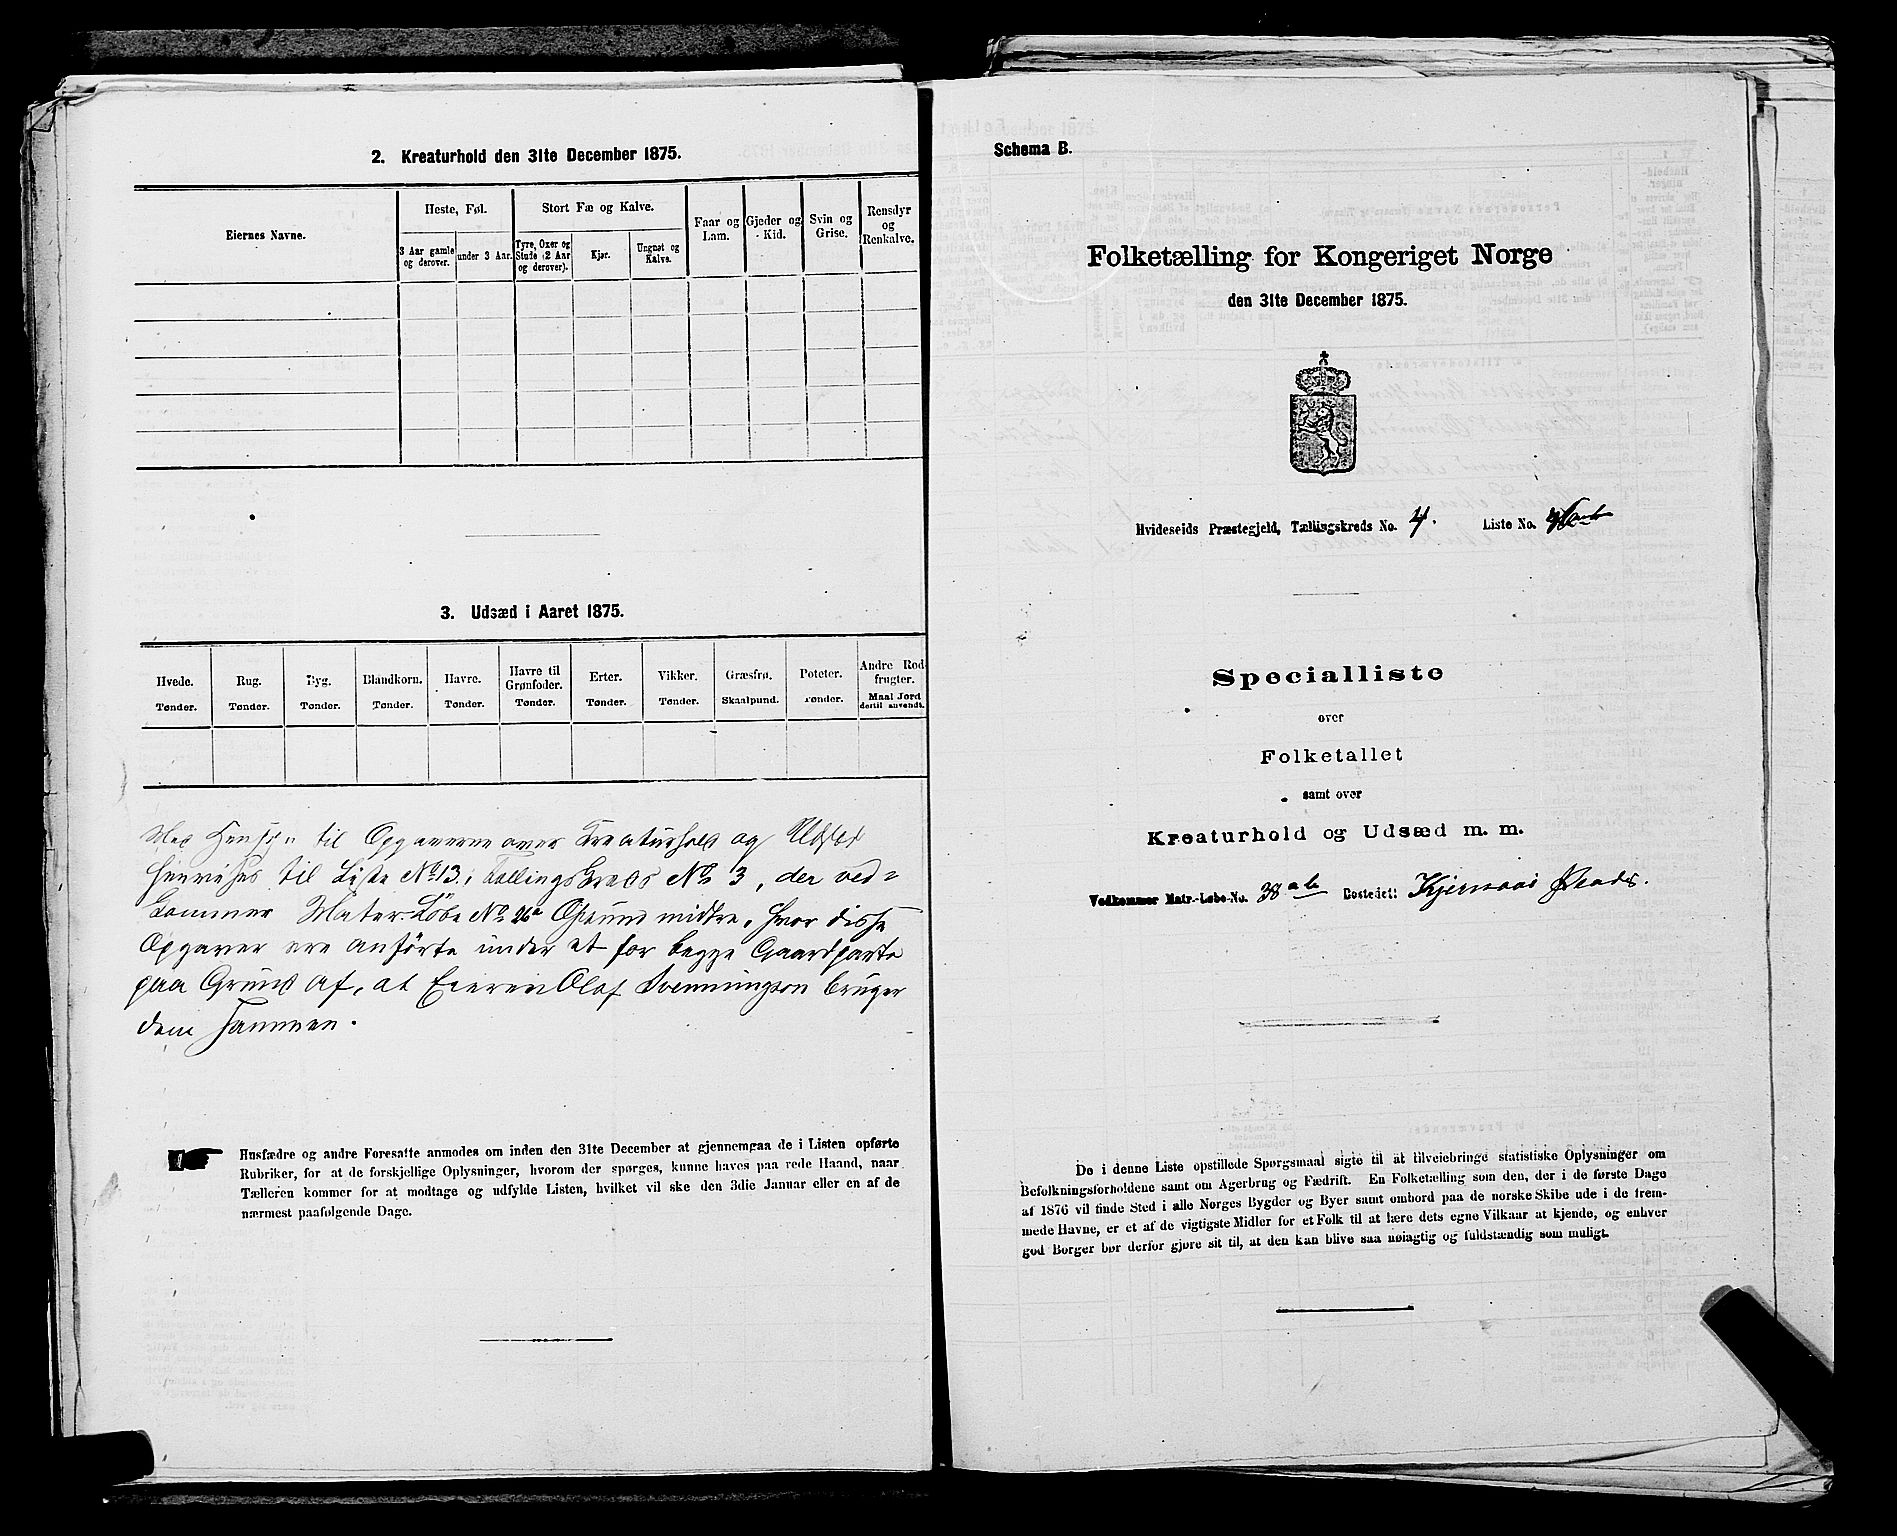 2. Kreaturhold den 31te December 1875.
Eiernes Navne.
Heste, Føl.
3 Aar gamle og derover.
under 3 Aar.
Stort Fæ og Kalve.
Tyre, Oxer og Stude (2 Aar og derover).
Kjør.
Ungnøt og Kalve.
Faar og Lam.
Gjeder og Kid.
Svin og Grise.
Rensdyr og Renkalve.
3. Udsæd i Aaret 1875.
Hvede. Tønder.
Rug. Tønder.
Byg. Tønder.
Blandkorn. Tønder.
Havre. Tønder.
Havre til Grønfoder. Tønder.
Erter. Tønder.
Vikker. Tønder.
Græsfrø. Skaalpund.
Poteter. Tønder.
Andre Rodfrugter. Maal Jord dertil anvendt.
Med Hensyn til Opgaverne over Kreaturhold og Udsæd
henvises til Liste No 13, Tællingskreds No 3, der ved=
kommer Mater-Løbe No 26a Grund midtre, hvor disse
Opgaver ere anførte under et for begge Gaardparte
paa Grund af, at Eieren Olaf Svenningson bruger
dem sammen.
Husfædre og andre Foresatte anmodes om inden den 31te December at gjennemgaa de i Listen opførte
Rubriker, for at de forskjellige Oplysninger, hvorom der spørges, kunne haves paa rede Haand, naar
Tælleren kommer for at modtage og udfylde Listen, hvilket vil ske den 3die Januar eller en af de
nærmest paafølgende Dage.
Schema B.
Folketælling for Kongeriget Norge
den 31te December 1875.
Hvideseids Præstegjeld, Tællingskreds No. 4. Liste No.
Specialliste
over
Folketallet
samt over
Kreaturhold og Udsæd m. m.
Vedkommer Matr.-Løbe-No. 38 a b Bostedet:
De i denne Liste opstillede Spørgsmaal sigte til at tilveiebringe statistiske Oplysninger om
Befolkningsforholdene samt om Agerbrug og Fædrift. En Folketælling som den, der i de første Dage
af 1876 vil finde Sted i alle Norges Bygder og Byer samt ombord paa de norske Skibe ude i de frem-
mede Havne, er et af de vigtigste Midler for et Folk til at lære dets egne Vilkaar at kjende, og enhver
god Borger bør derfor gjøre sit til, at den kan blive saa nøiagtig og fuldstændig som muligt.